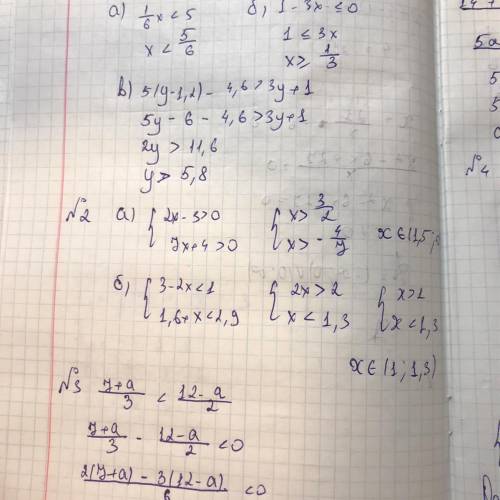 а) 1/6 x < 5
x < 5/6
б) 1 - 3x ≤ 0
1 ≤ 3x
x ≥ 1/3
в) 5(y-1,2) - 4,6 > 3y+1
5y - 6 - 4,6 > 3y+1
2y > 11,6
y > 5,8
№2 а) { 2x-3>0 { x > 3/2
7x+4>0 x > - 4/7 x ∈ (1,5;
б) { 3-2x<1 { 2x>2 { x>1
1,6+x<2,9 x < 1,3 x<1,3
x ∈ (1; 1,3)
№3 (7+a)/3 < (12-a)/2
(7+a)/3 - (12-a)/2 < 0
(2(7+a) - 3(12-a))/6 < 0
5a
5
5
№4